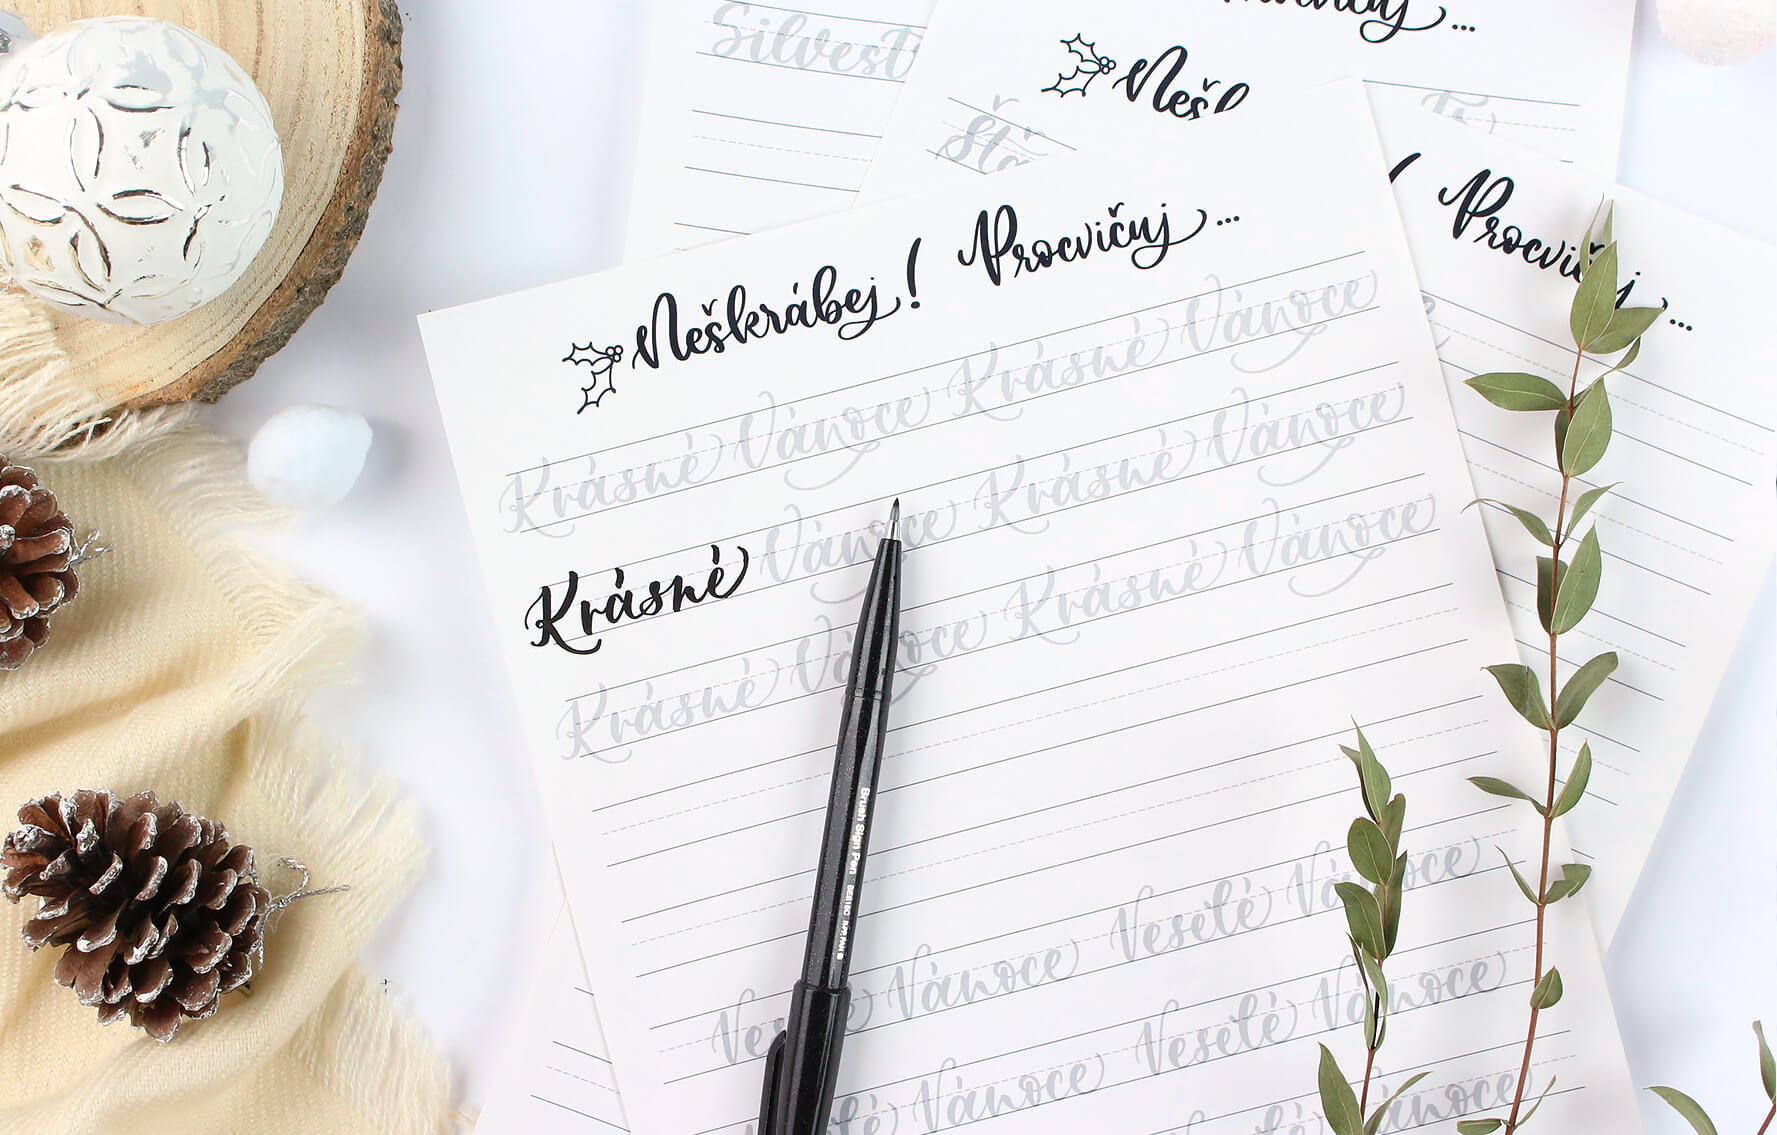 Silvest
Procvičuj...
Nešk
Neškrábej! Procvičuj...
! Procvičuj...
Krásné Vánoce Krásné Vánoce
Krásné Vánoce Krásné Vánoce
Krásné Vánoce Krásné Vánoce
Veselé Vánoce Veselé Vánoce
Vánoce Veselé Vánoce
Veselé Vánoce Vánoce
Brush Sign Pen SES15C